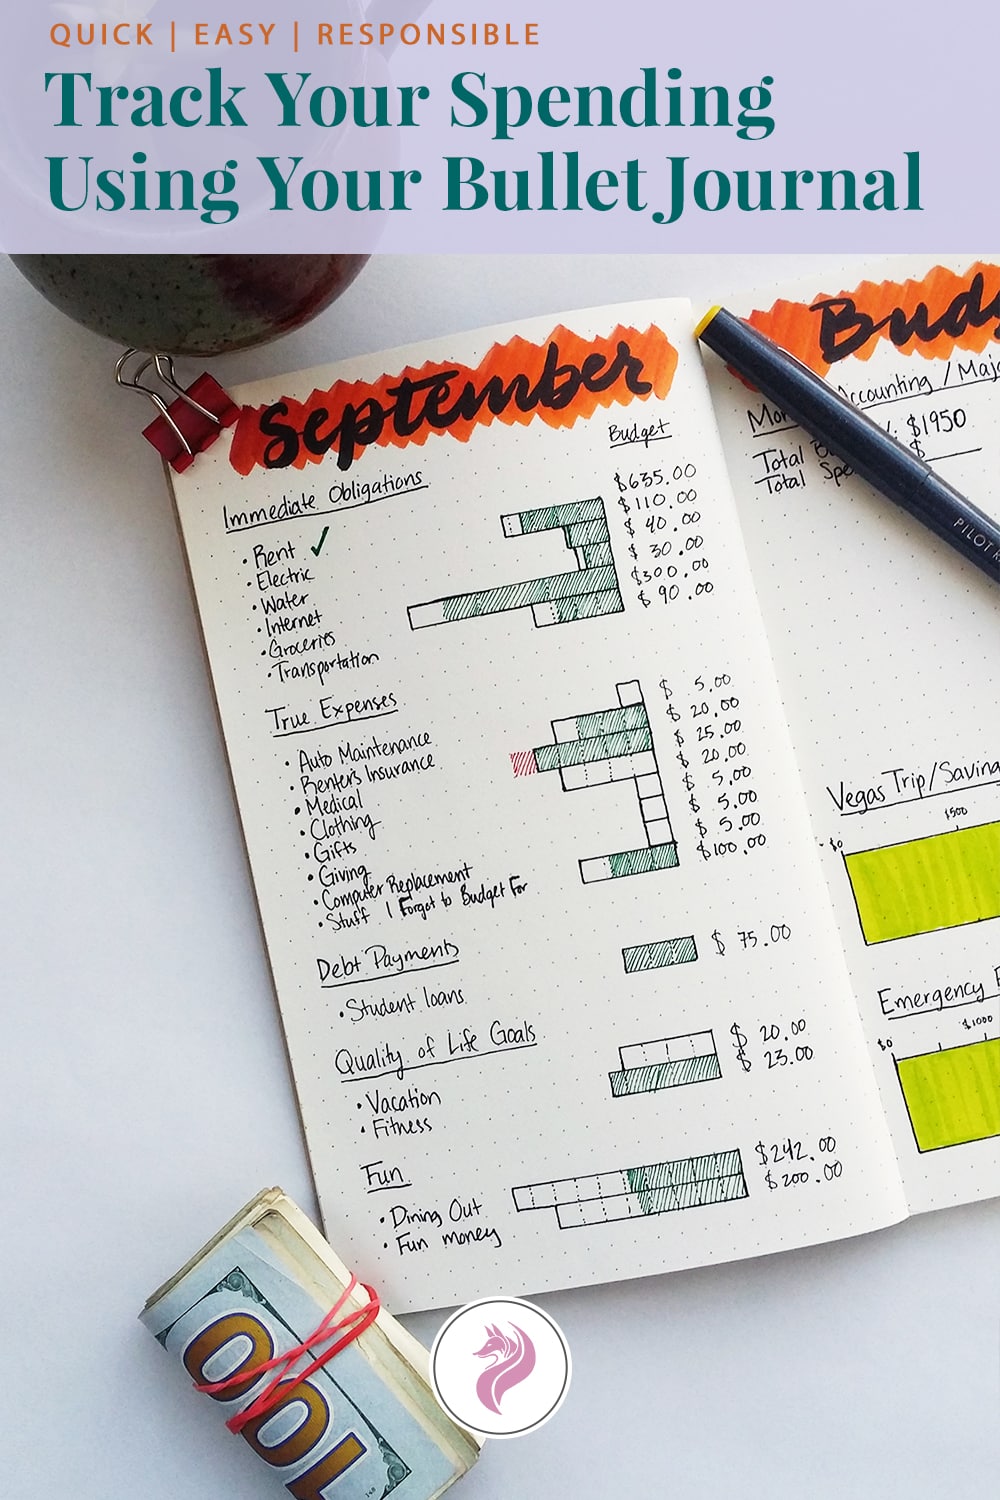 QUICK | EASY | RESPONSIBLE
Track Your Spending
Using Your Bullet Journal
September
Budget
Immediate Obligations
• Rent ✓ $635.00
• Electric $110.00
• Water $ 40.00
• Internet $ 30.00
• Groceries $300.00
• Transportation $ 90.00
True Expenses
• Auto Maintenance $ 5.00
• Renter's Insurance $ 20.00
• Medical $ 25.00
• Clothing $ 20.00
• Gifts $ 5.00
• Giving $ 5.00
• Computer Replacement $ 5.00
• Stuff I Forgot to Budget For $100.00
Debt Payments
• Student loans $ 75.00
Quality of Life Goals
• Vacation $ 20.00
• Fitness $ 23.00
Fun
• Dining Out $242.00
• Fun money $200.00
Accounting / Maj
Total $1950
Total Spe $
PILOT
Vegas Trip/Savin
$0 $500
Emergency
$0 $1000